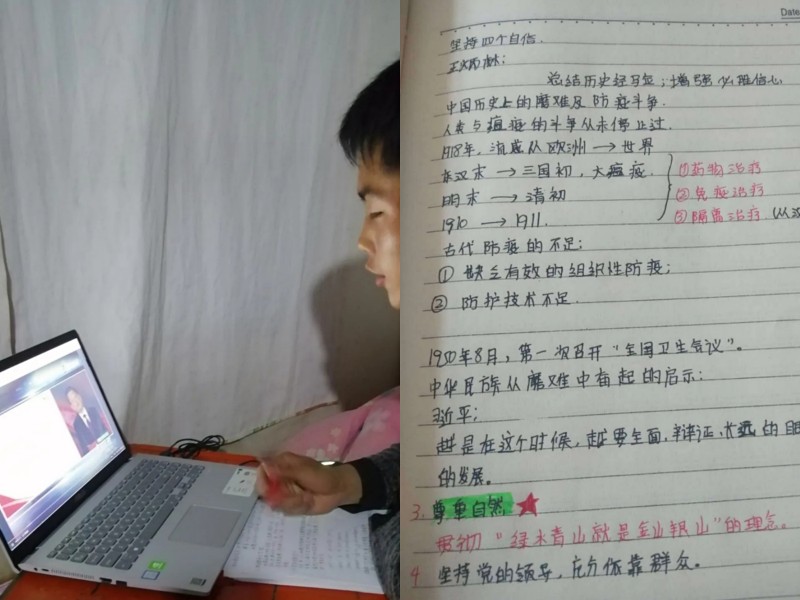 Date
坚持四个自信.
总结历史经习短;增强必胜信心
中国历史上的磨难及防疫斗争.
人类与瘟疫的斗争从未停止过.
1918年,流感从欧洲→世界
东汉末→三国初,大瘟疫.
①药物治疗
明末→清初
②免疫治疗
1910→1911.
③隔离治疗
古代防疫的不足:
①缺乏有效的组织性防疫;
②防护技术不足.
1950年8月,第一次召开"全国卫生会议"。
中华民族从磨难中奋起的启示:
习近平:
越是在这个时候,越要全面,辩证,长远的
的发展。
3.尊重自然
贯彻"绿水青山就是金山银山"的理念。
4.坚持党的领导,充分依靠群众。